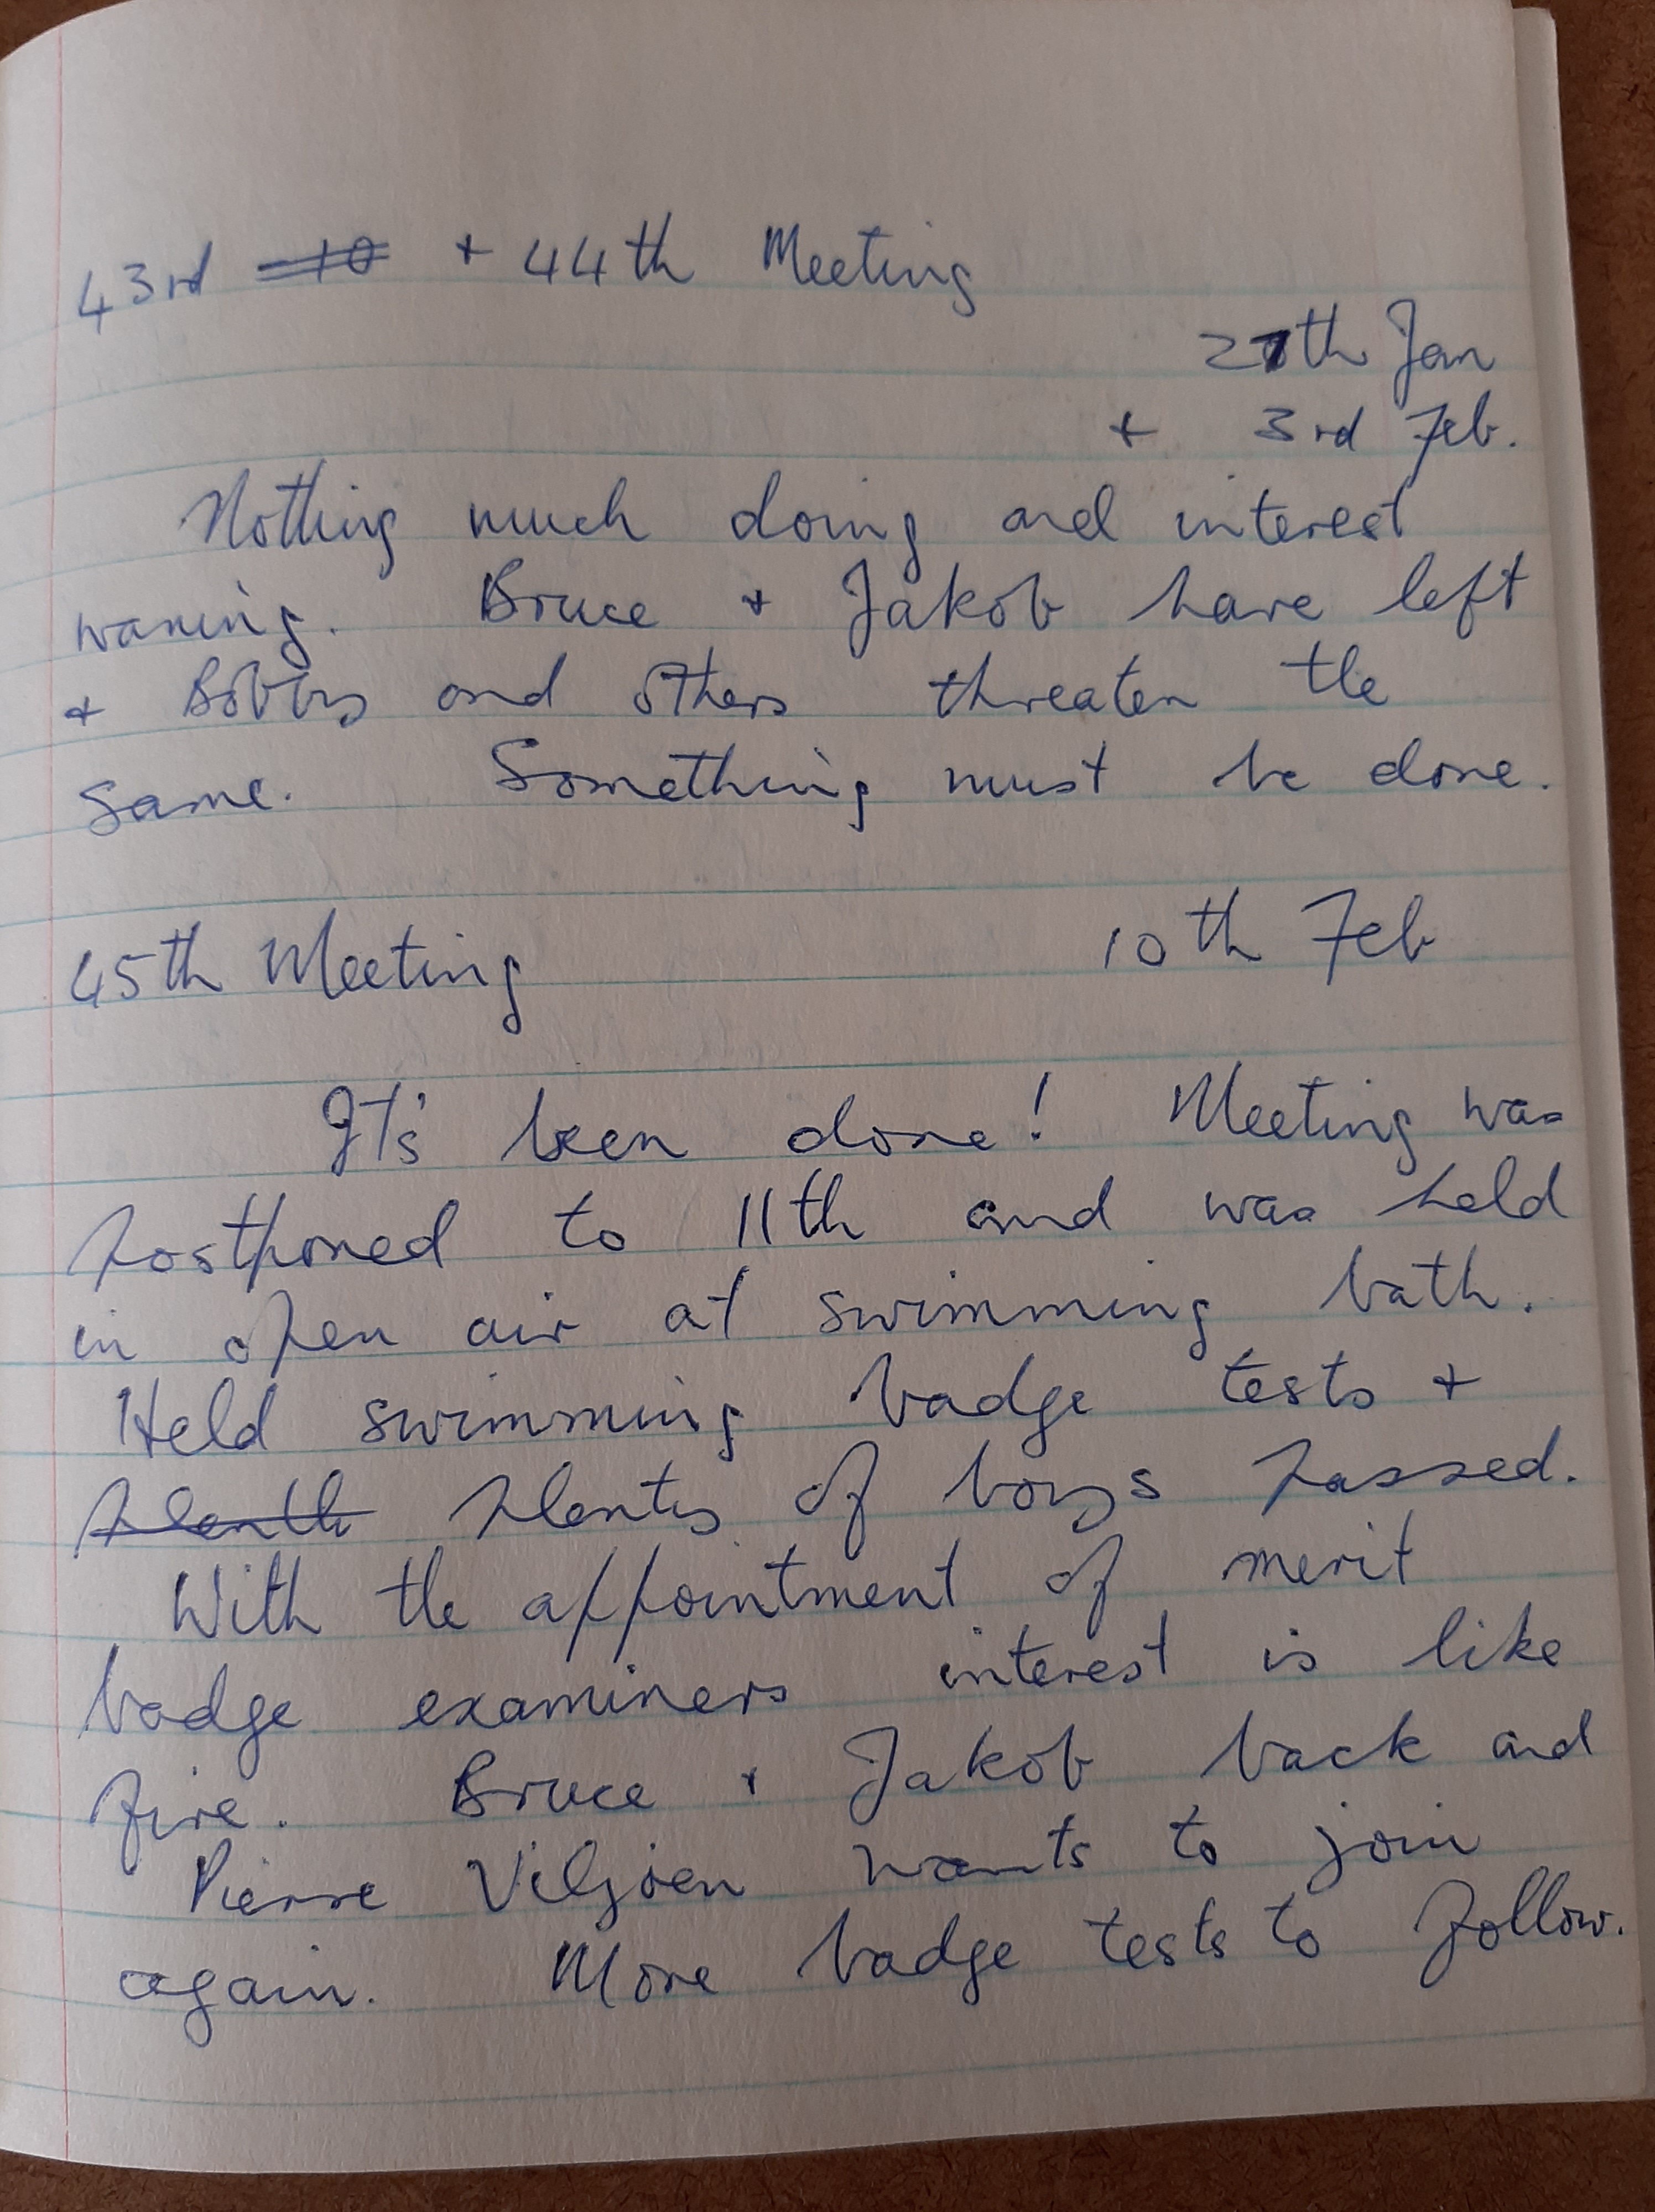 43rd + 44th Meeting
27th Jan
+ 3rd Feb.
Nothing much doing and interest
waning. Bruce + Jakob have left
+ Bobby and others threaten the
same. Something must be done.
45th Meeting 10th Feb
It's been done! Meeting was
postponed to 11th and was held
in open air at swimming bath.
Held swimming badge tests +
plenty of boys passed.
With the appointment of merit
badge examiners interest is like
fire. Bruce + Jakob back and
Pierre Viljoen wants to join
again. More badge tests to follow.